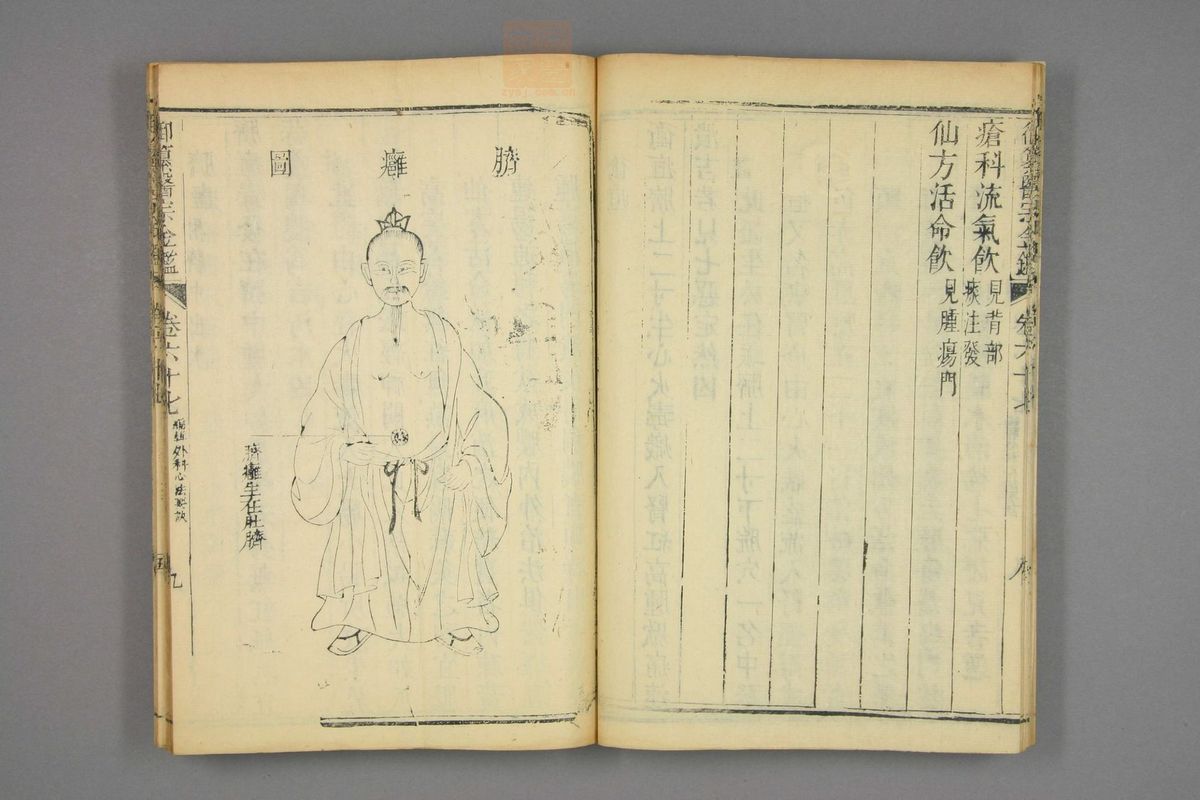 御纂醫宗金鑑 卷六十七
瘡科流氣飲 見背部痰注發
仙方活命飲 見腫瘍門
臍癰圖
臍癰生在肚臍
御纂醫宗金鑑 卷六十七 外科心法要訣
九
zysj.com.cn